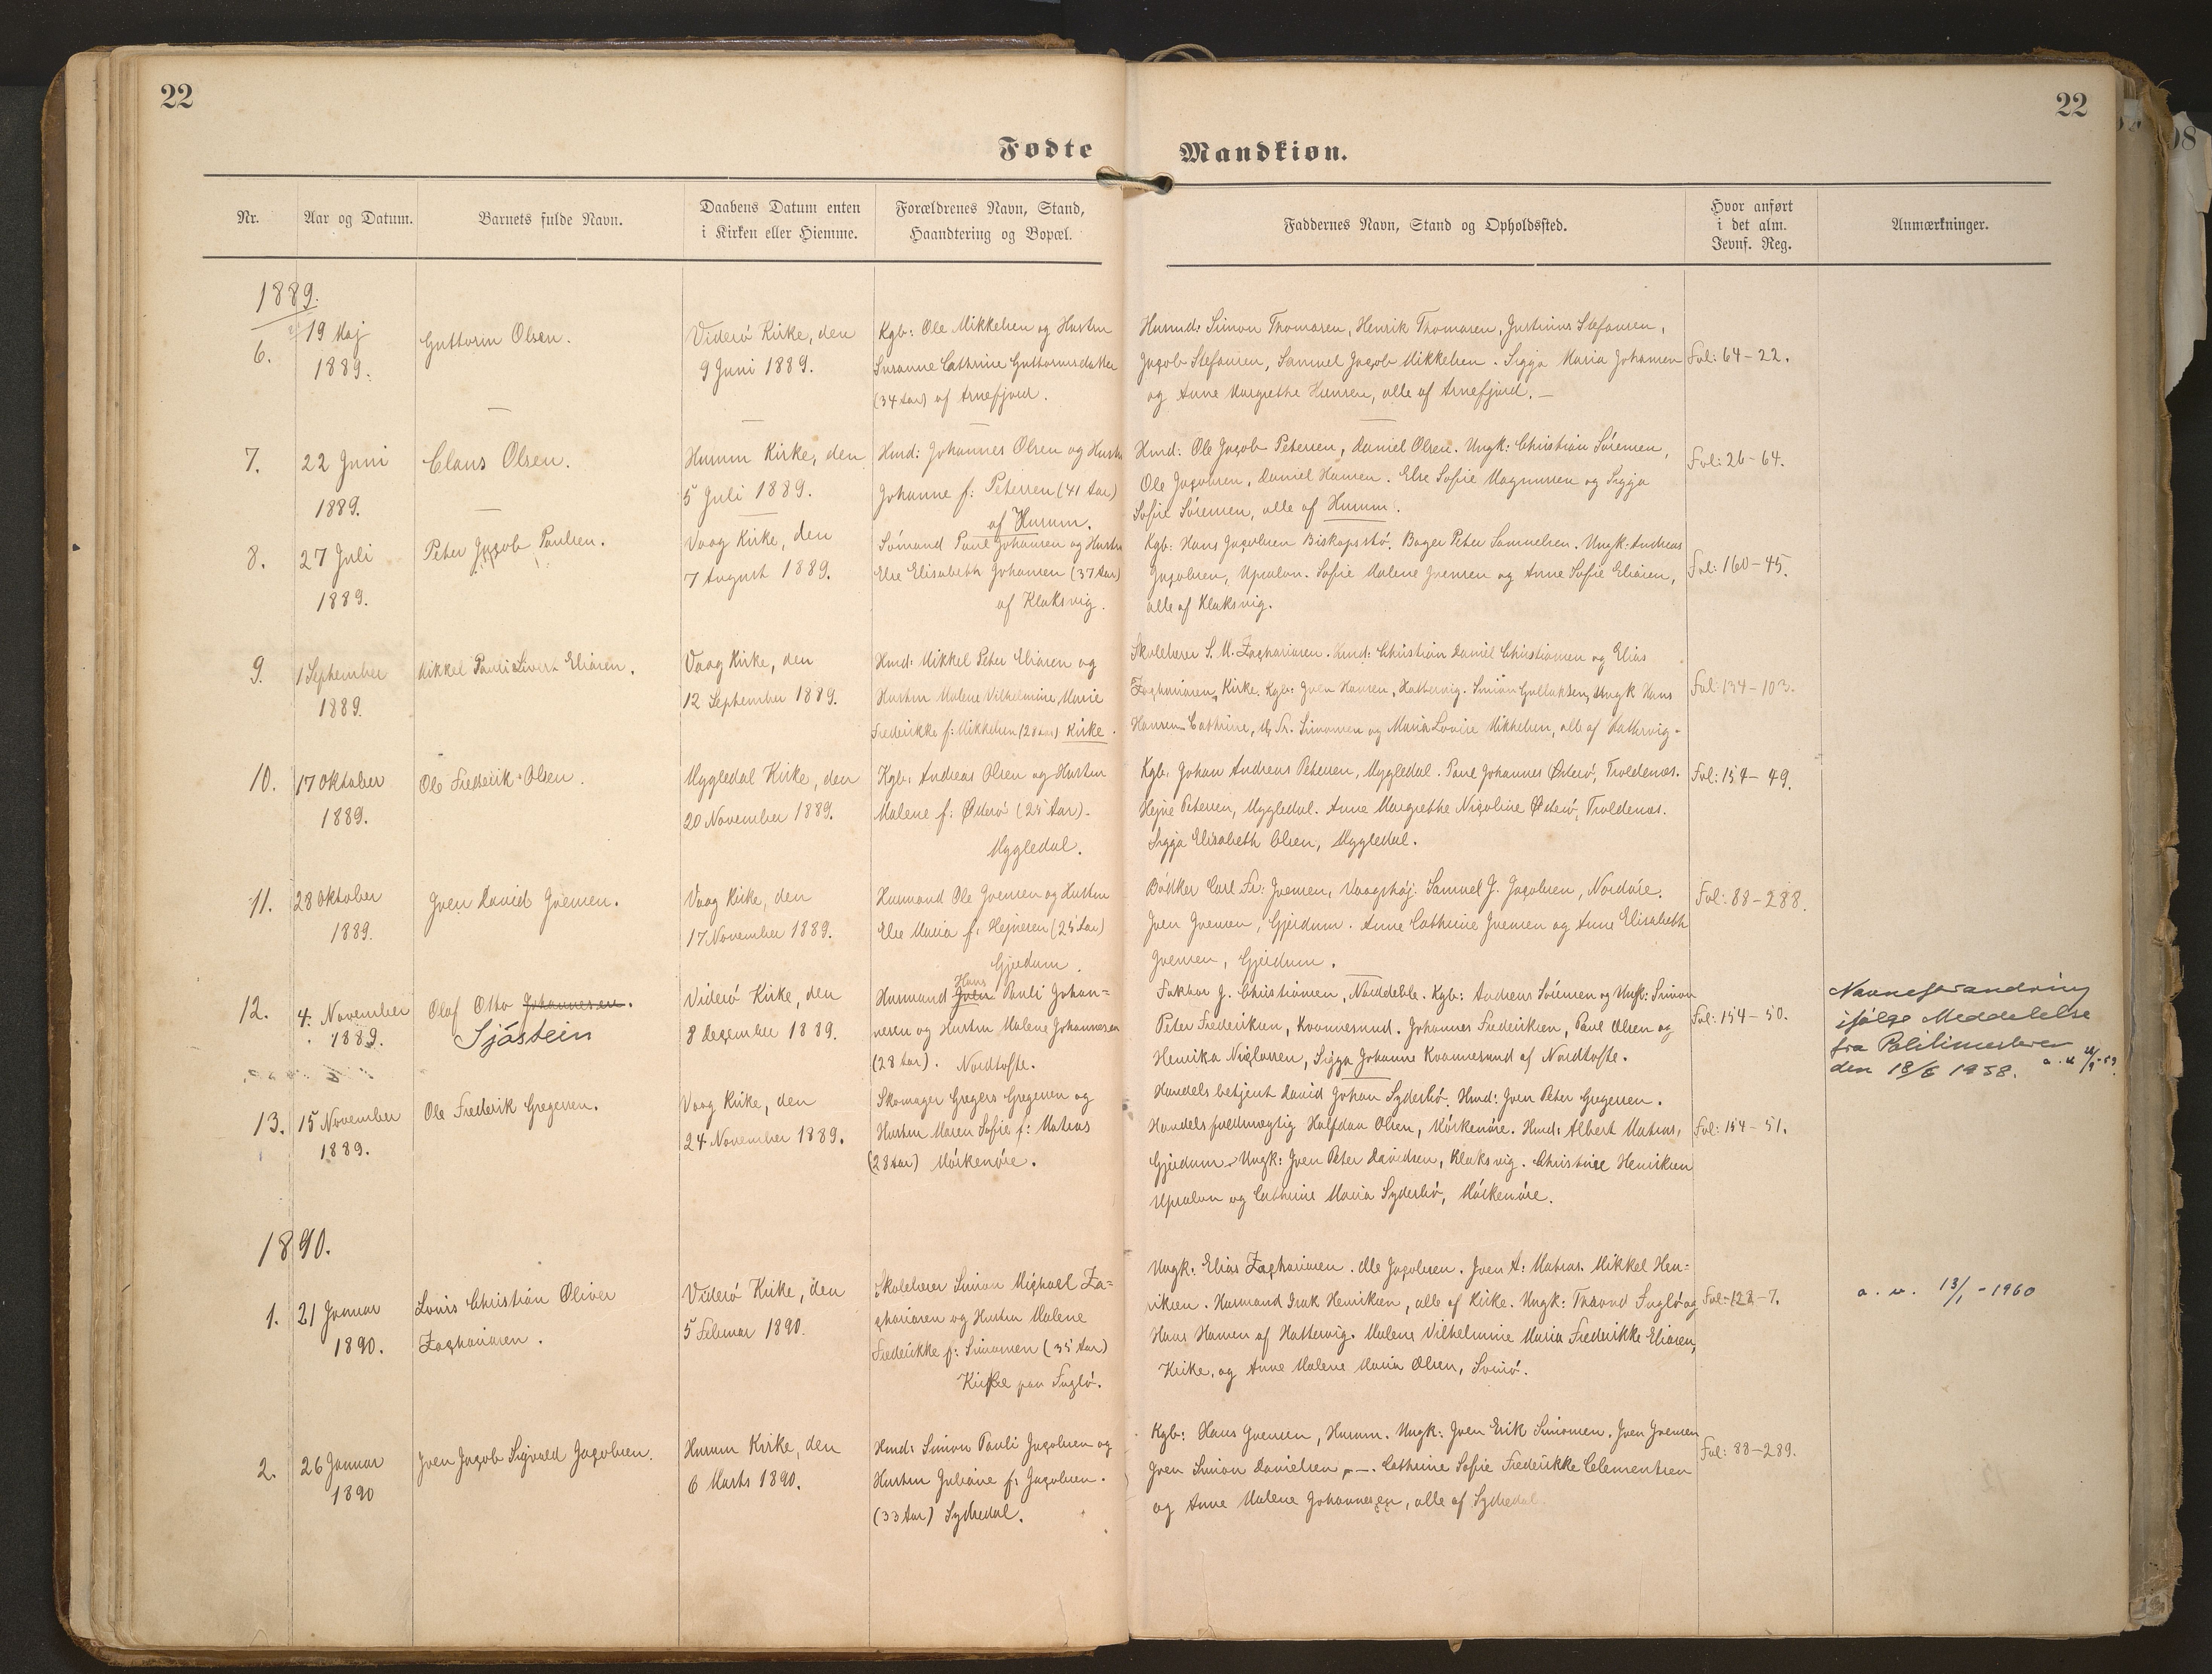 22
22
Fødte
Mandkiøn.
Nr.
Aar og Datum.
Barnets fulde Navn.
Daabens Datum enten
i Kirken eller Hiemme.
Forældrenes Navn, Stand,
Haandtering og Bopæl.
Faddernes Navn, Stand og Opholdssted.
Hvor anført
i det alm.
Jevnf. Reg.
Anmærkninger.
1889.
6.
19 Maj
1889.
Guttorm Olsen.
Viderø Kirke, den
9 Juni 1889.
Kgb: Ole Mikkelsen og Hustru
Susanne Cathrine Guttormsdatter
(34 Aar) af Arnefjord.
Husmd: Simon Thomasen, Henrik Thomasen, Justinus Stefansen,
Jacob Stefansen, Samuel Jacob Mikkelsen. Sigga Maria Johansen
og Anne Margrethe Hansen, alle af Arnefjord. —
Fol: 64-22.
7.
22 Juni
1889.
Claus Olsen.
Husum Kirke, den
5 Juli 1889.
Hmd: Johannes Olsen og Hustru
Johanne f: Petersen (41 Aar)
af Husum.
Hmd: Ole Jacob Petersen, Daniel Olsen. Ungk: Christian Sørensen,
Ole Jacobsen, Daniel Hansen. Else Sofie Magnussen og Sigga
Sofie Sørensen, alle af Husum.
Fol: 26-64.
8.
27 Juli
1889.
Peter Jacob Poulsen.
Vaag Kirke, den
7 August 1889.
Sømand Poul Johansen og Hustru
Else Elisabeth Johansen (37 Aar)
af Klaksvig.
Kgb: Hans Jacobsen Biskopsstø. Bager Peter Samuelsen. Ungk: Andreas
Jacobsen, Upsalon. Sofie Malene Joensen og Anne Sofie Eliasen,
alle af Klaksvig.
Fol: 160-45.
9.
1 September
1889.
Mikkel Pauli Sivert Eliasen.
Vaag Kirke, den
12 September 1889.
Hmd: Mikkel Peter Eliasen og
Hustru Malene Vilhelmine Marie
Frederikke f: Mikkelsen (28 Aar) Kirke.
Skolelærer S. M. Zachariasen. Hmd: Christian Daniel Christiansen og Elias
Zachariasen, Kirke. Kgb: Joen Hansen, Hattervig. Simon Gullaksen, Ungk Hans
Hansen Cathrine, M. Fr. Simonsen og Maria Lovise Mikkelsen, alle af Hattervig.
Fol: 134-103.
10.
17 Oktober
1889.
Ole Frederik Olsen.
Mygledal Kirke, den
20 November 1889.
Kgb: Andreas Olsen og Hustru
Malene f: Østerø (25 Aar).
Mygledal.
Kgb: Johan Andreas Petersen, Mygledal. Poul Johannes Østerø, Troldenæs.
Hejne Petersen, Mygledal. Anne Margrethe Nicoline Østerø, Troldenæs.
Sigga Elisabeth Olsen, Mygledal.
Fol: 154-49.
11.
28 Oktober
1889.
Joen David Joensen.
Vaag Kirke, den
17 November 1889.
Husmand Ole Joensen og Hustru
Else Maria f: Hejnesen (25 Aar)
Gjerdum.
Bødker Carl Fr: Joensen, Vaagshøj. Samuel J. Jacobsen, Nordøre.
Joen Joensen, Gjerdum. Anne Cathrine Joensen og Anne Elisabeth
Joensen, Gjerdum.
Fol: 88-288.
12.
4. November
1889.
Olaf Otto Johannesen.
Sjóstein
Viderø Kirke, den
8 December 1889.
Hans
Husmand Joen Pauli Johan=
nesen og Hustru Malene Johannesen
(28 Aar). Nordtofte.
Faktor J. Christiansen, Norddeble. Kgb: Andreas Sørensen og Ungk: Simon
Peter Frederiksen, Kvannesund. Johannes Frederiksen, Poul Olsen og
Henrika Niclassen, Sigga Johanne Kvannesund af Nordtofte.
Fol: 154-50.
Navneforandring
ifølge Meddelelse
fra Politimesteren
den 18/6 1958.
13.
15 November
1889.
Ole Frederik Gregersen.
Vaag Kirke, den
24 November 1889.
Skomager Gregers Gregersen og
Hustru Maren Sofie f: Matras
(28 Aar) Mørkenøre.
Handelsbetjent David Johan Syderbø. Hmd: Joen Peter Gregersen.
Handelsfuldmægtig Halfdan Olsen, Mørkenøre. Hmd: Albert Matras,
Gjerdum. Ungk: Joen Peter Davidsen, Klaksvig. Christine Henriksen
Upsalon og Cathrine Maria Syderbø, Mørkenøre.
Fol: 154-51.
1890.
1.
21 Januar
1890.
Louis Christian Oliver
Zachariasen.
Viderø Kirke, den
5 Februar 1890.
Skolelærer Simon Michael Za=
chariasen og Hustru Malene
Frederikke f: Simonsen (35 Aar)
Kirke paa Fuglø.
Ungk: Elias Zachariasen. Ole Jacobsen. Joen A: Matras. Mikkel Hen=
riksen. Husmand Isak Henriksen, alle af Kirke. Ungk: Thrond Fuglø og
Hans Hansen af Hattervig. Malene Vilhelmine Maria Frederikke Eliasen,
Kirke, og Anne Malene Maria Olsen, Svinø.
Fol: 128-7.
a. u. 13/1-1960
2.
26 Januar
1890
Joen Jacob Sigvald Jacobsen.
Husum Kirke, den
6 Marts 1890.
Hmd: Simon Pauli Jacobsen og
Hustru Juliane f: Jacobsen.
(33 Aar) Sydredal.
Kgb: Hans Joensen, Husum. Ungk: Joen Erik Simonsen. Joen Joensen
Joen Simon Danielsen —. Cathrine Sofie Frederikke Clementsen
og Anne Malene Johannesen, alle af Sydredal.
Fol: 88-289.